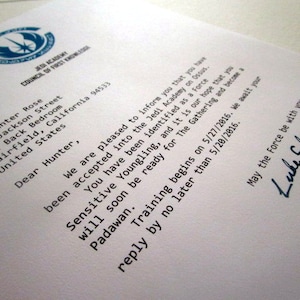 JEDI ACADEMY
COUNCIL OF FIRST KNOWLEDGE
nter Rose
Jackson Street
Back Bedroom
irfield, California 94533
United States
Dear Hunter,
We are pleased to inform you that you have
been accepted into the Jedi Academy on Ossus.
You have been identified as a Force
Sensitive Youngling, and it is our hope that you
will soon be ready for The Gathering and become a
Padawan.
Training begins on 5/27/2016. We await your
reply by no later than 5/20/2016.
May the Force be with
Luke